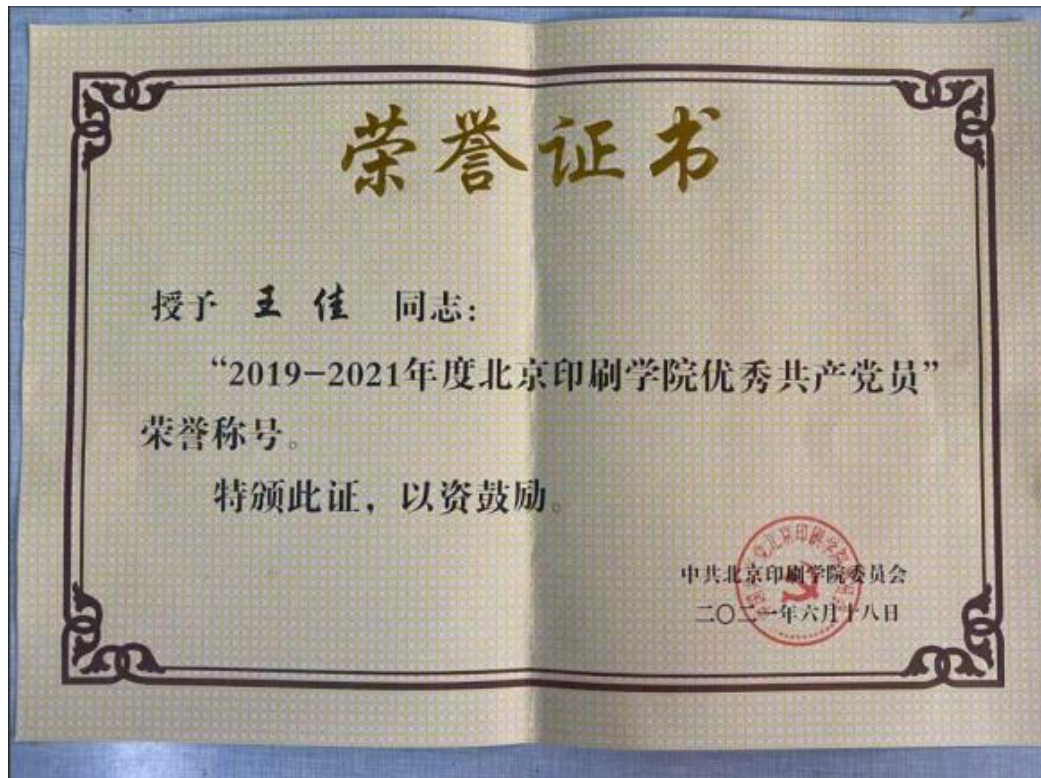 荣誉证书
授予 王佳 同志：
“2019-2021年度北京印刷学院优秀共产党员”
荣誉称号。
特颁此证，以资鼓励。
中共北京印刷学院委员会
二〇二一年六月十八日